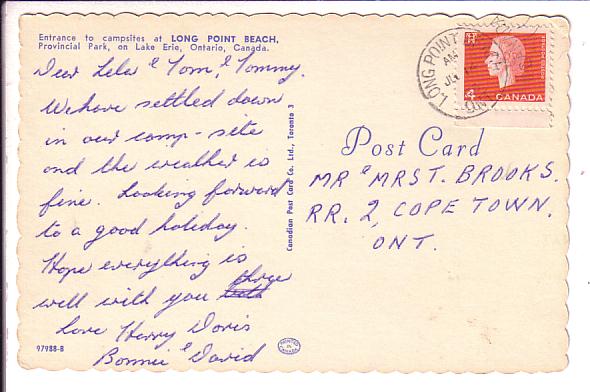 Entrance to campsites at LONG POINT BEACH,
Provincial Park, on Lake Erie, Ontario, Canada.
Dear Lela & Tom, & Tommy.
We have settled down
in our camp-site
and the weather is
fine. Looking forward
to a good holiday.
Hope everything is
well with you three
Love Harry Doris
Bonnie & David
97988-B
Canadian Post Card Co. Ltd., Toronto 3
PRINTED IN CANADA
Post Card
MR & MRS T. BROOKS.
RR. 2, COPE TOWN.
ONT.
LONG POINT
AM
ONT
4
CANADA